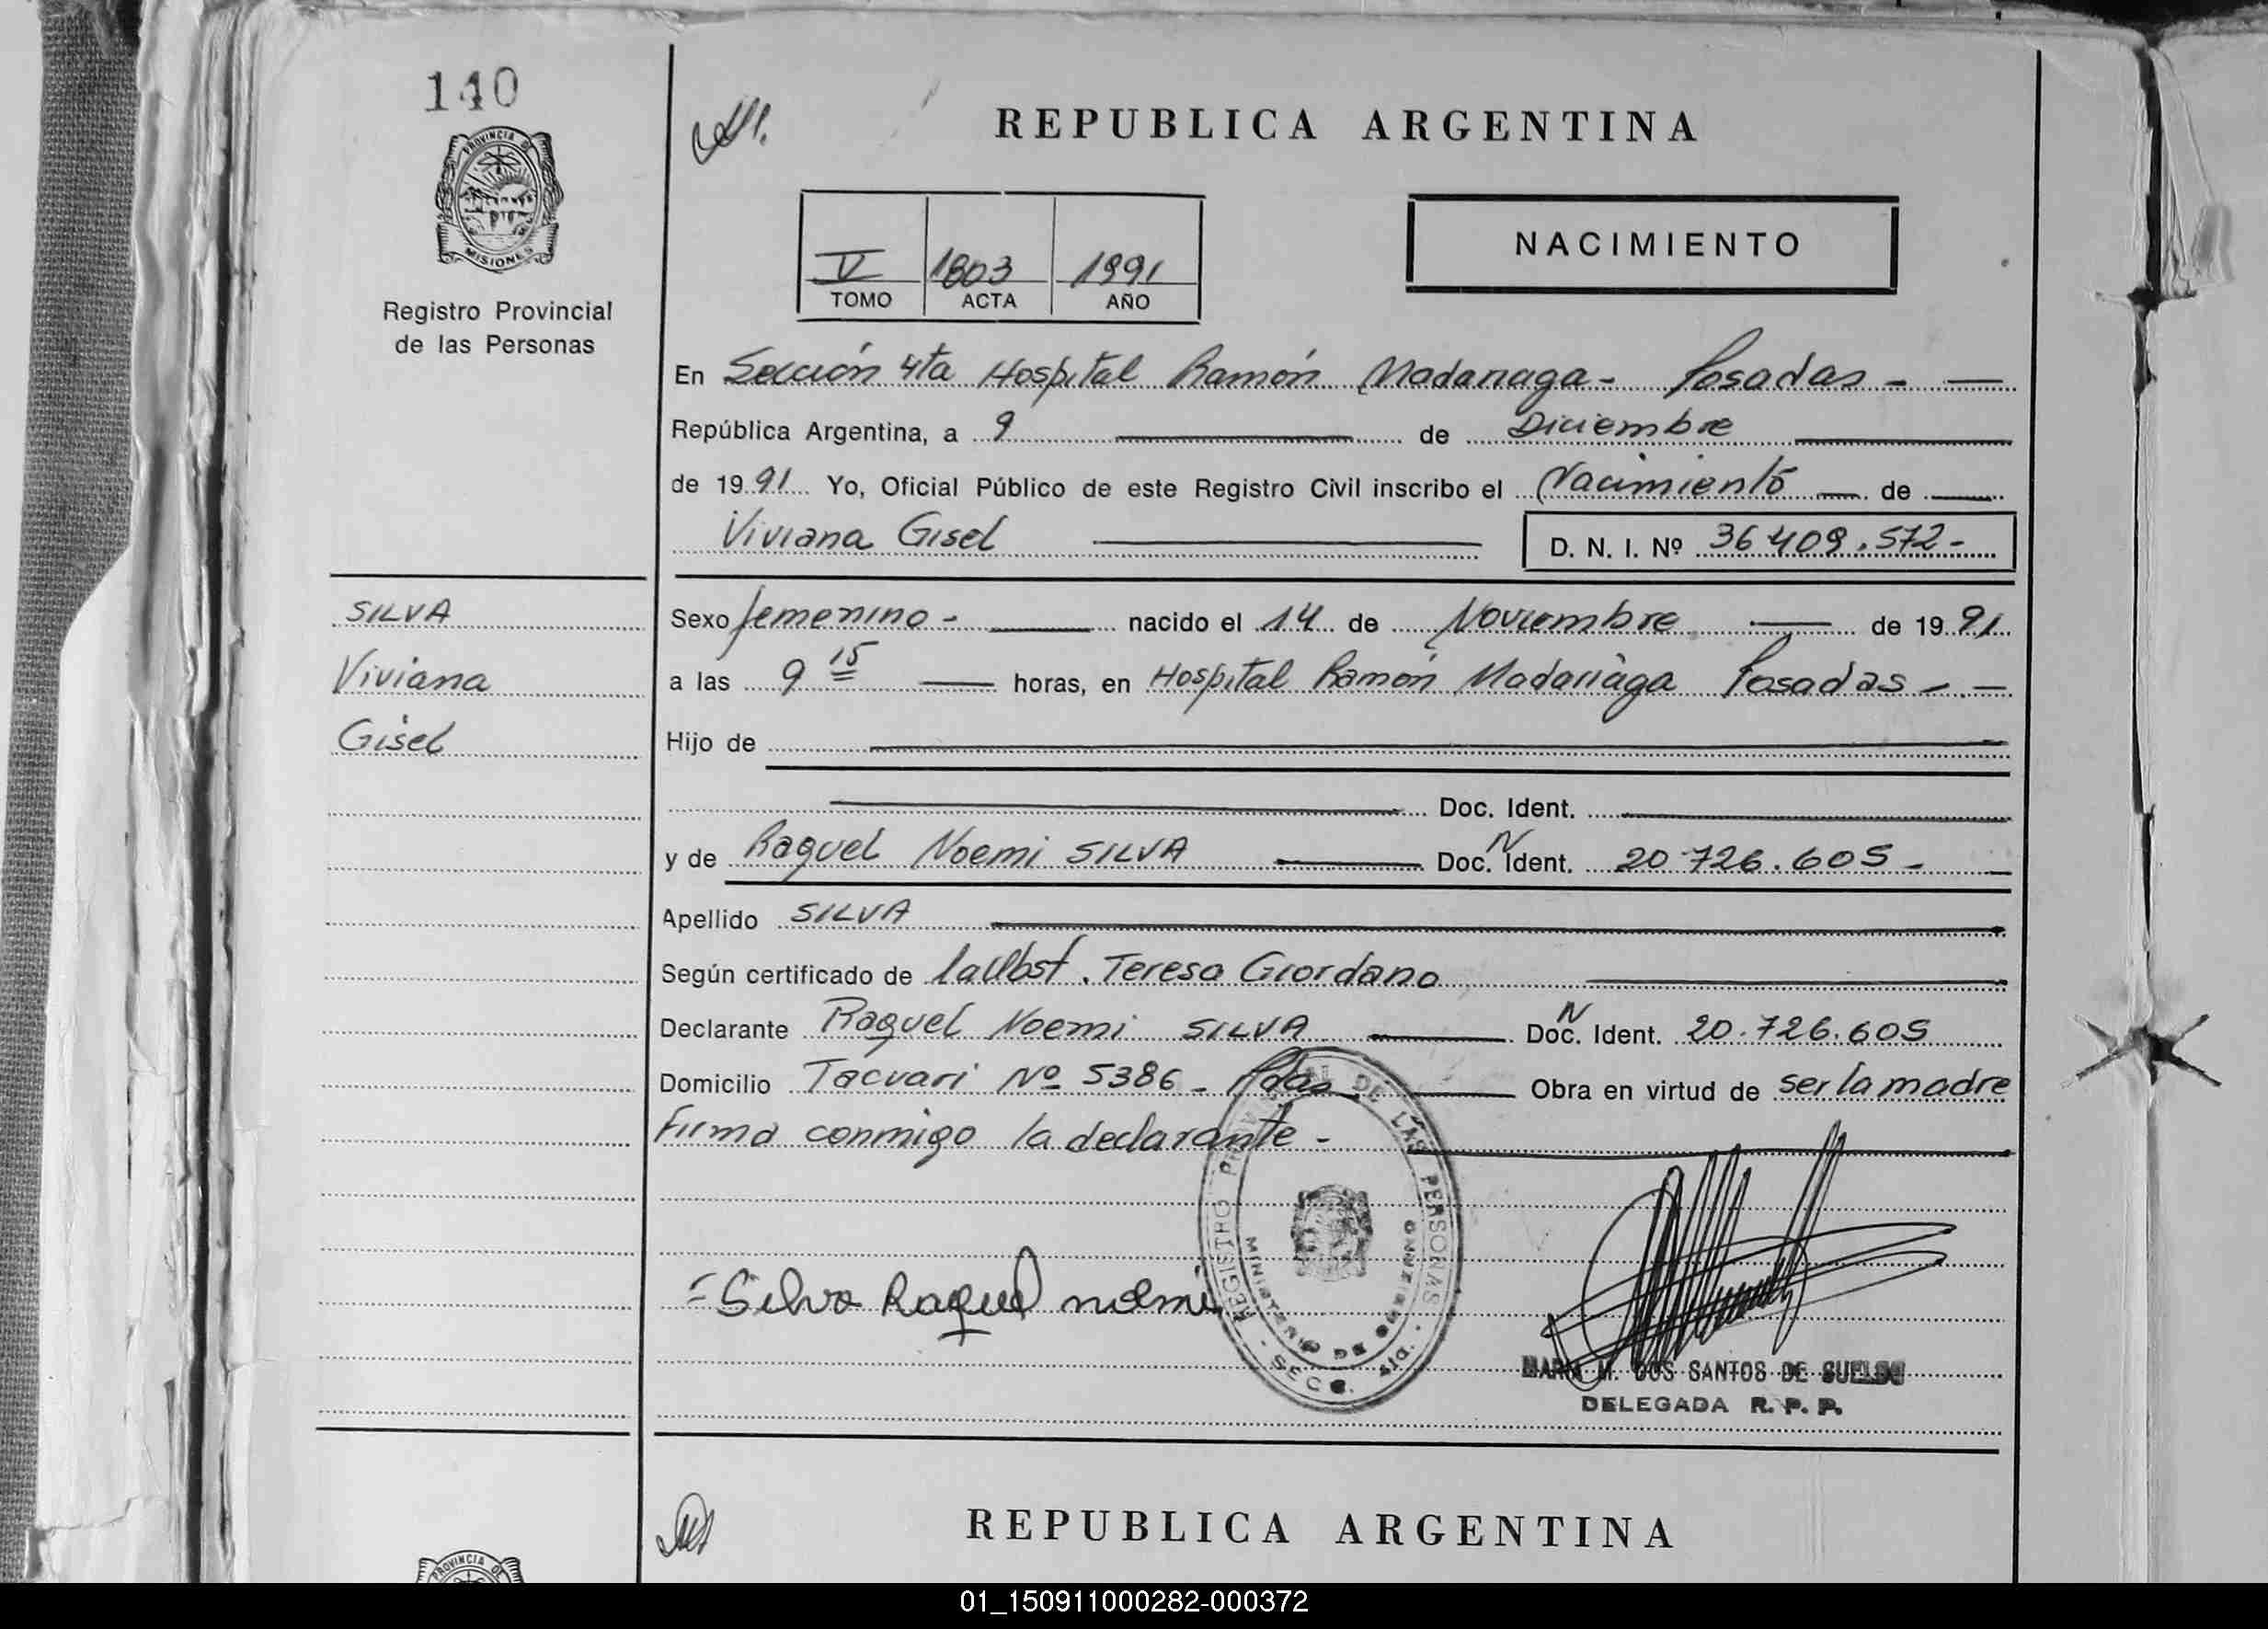 140
PROVINCIA DE
MISIONES
Registro Provincial
de las Personas
REPUBLICA ARGENTINA
V 1803 1991
TOMO ACTA AÑO
NACIMIENTO
En Sección 4ta Hospital Ramón Madariaga - Posadas -
República Argentina, a 9 de Diciembre
de 1991 Yo, Oficial Público de este Registro Civil inscribo el Nacimiento de
Viviana Gisel D. N. I. Nº 36 409.572-
SILVA
Viviana
Gisel
Sexo femenino - nacido el 14 de Noviembre de 1991
a las 9 15 horas, en Hospital Ramón Madariaga Posadas -
Hijo de
Doc. Ident.
y de Raquel Noemi SILVA Doc. N Ident. 20 726.605-
Apellido SILVA
Según certificado de la Obst. Teresa Giordano
Declarante Raquel Noemi SILVA Doc. N Ident. 20.726.605
Domicilio Tacuari Nº 5386 - Pdas Obra en virtud de ser la madre
Firma conmigo la declarante -
REGISTRO PROVINCIAL DE LAS PERSONAS
MINISTERIO DE GOBIERNO
- SECC. 4ta.
= Silva Raquel noemi
MARIA M. DOS SANTOS DE SUELDO
DELEGADA R. P. P.
REPUBLICA ARGENTINA
PROVINCIA DE
01_150911000282-000372